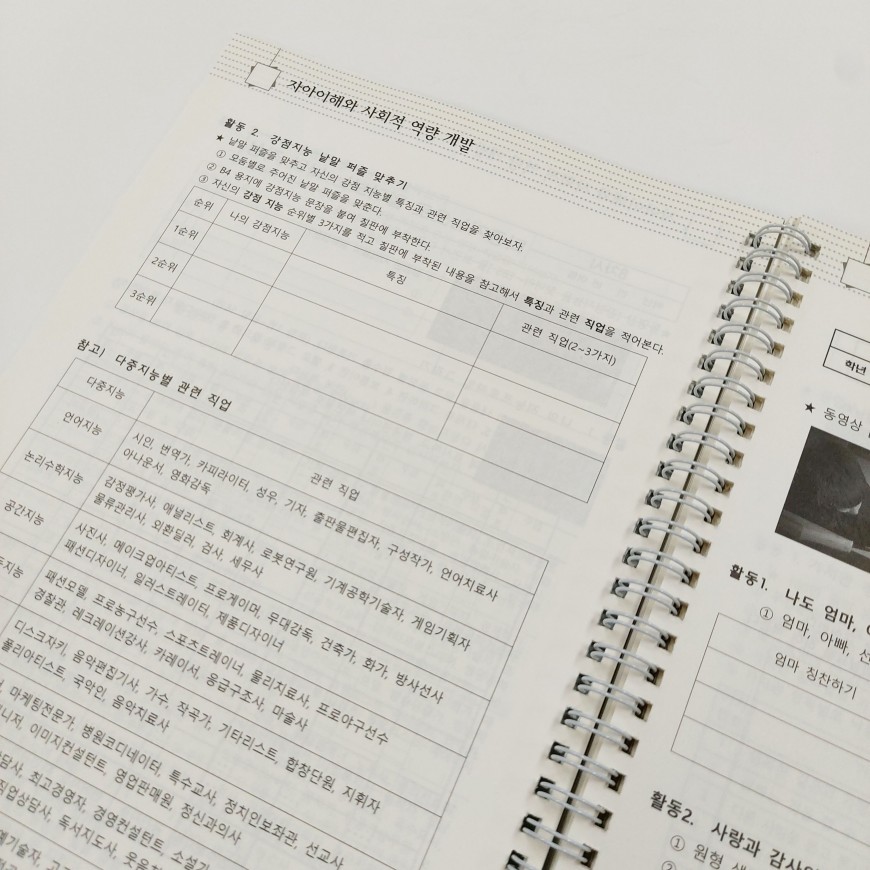 자아이해와 사회적 역량 개발
활동 2. 강점지능 낱말 퍼즐 맞추기
★ 낱말 퍼즐을 맞추고 자신의 강점 지능별 특징과 관련 직업을 찾아보자.
① 모둠별로 주어진 낱말 퍼즐을 맞춘다.
② B4 용지에 강점지능 문장을 붙여 칠판에 부착한다.
③ 자신의 강점 지능 순위별 3가지를 적고 칠판에 부착된 내용을 참고해서 특징과 관련 직업을 적어본다.
순위 나의 강점지능 특징 관련 직업(2~3가지)
1순위
2순위
3순위
참고) 다중지능별 관련 직업
다중지능 관련 직업
언어지능 시인, 번역가, 카피라이터, 성우, 기자, 출판물편집자, 구성작가, 언어치료사
아나운서, 영화감독
논리수학지능 감정평가사, 애널리스트, 회계사, 로봇연구원, 기계공학기술자, 게임기획자
물류관리사, 외환딜러, 검사, 세무사
공간지능 사진사, 메이크업아티스트, 프로게이머, 무대감독, 건축가, 화가, 방사선사
패션디자이너, 일러스트레이터, 제품디자이너
지능 패션모델, 프로농구선수, 스포츠트레이너, 물리치료사, 프로야구선수
경찰관, 레크레이션강사, 카레이서, 응급구조사, 마술사
디스크자키, 음악편집기사, 가수, 작곡가, 기타리스트, 합창단원, 지휘자
폴리아티스트, 국악인, 음악치료사
마케팅전문가, 병원코디네이터, 특수교사, 정치인보좌관, 선교사
이미지컨설턴트, 영업판매원, 정신과의사
최고경영자, 경영컨설턴트,
직업상담사, 독서지도사,
학년
★ 동영상
활동1. 나도 엄마,
① 엄마, 아빠,
엄마 칭찬하기
활동2. 사랑과
① 원형
②